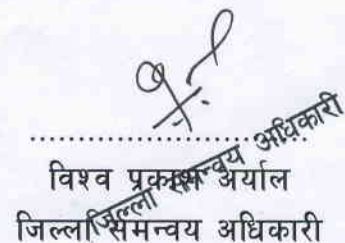 ..............................
जिल्ला समन्वय अधिकारी
विश्व प्रकाश अर्याल
जिल्ला समन्वय अधिकारी